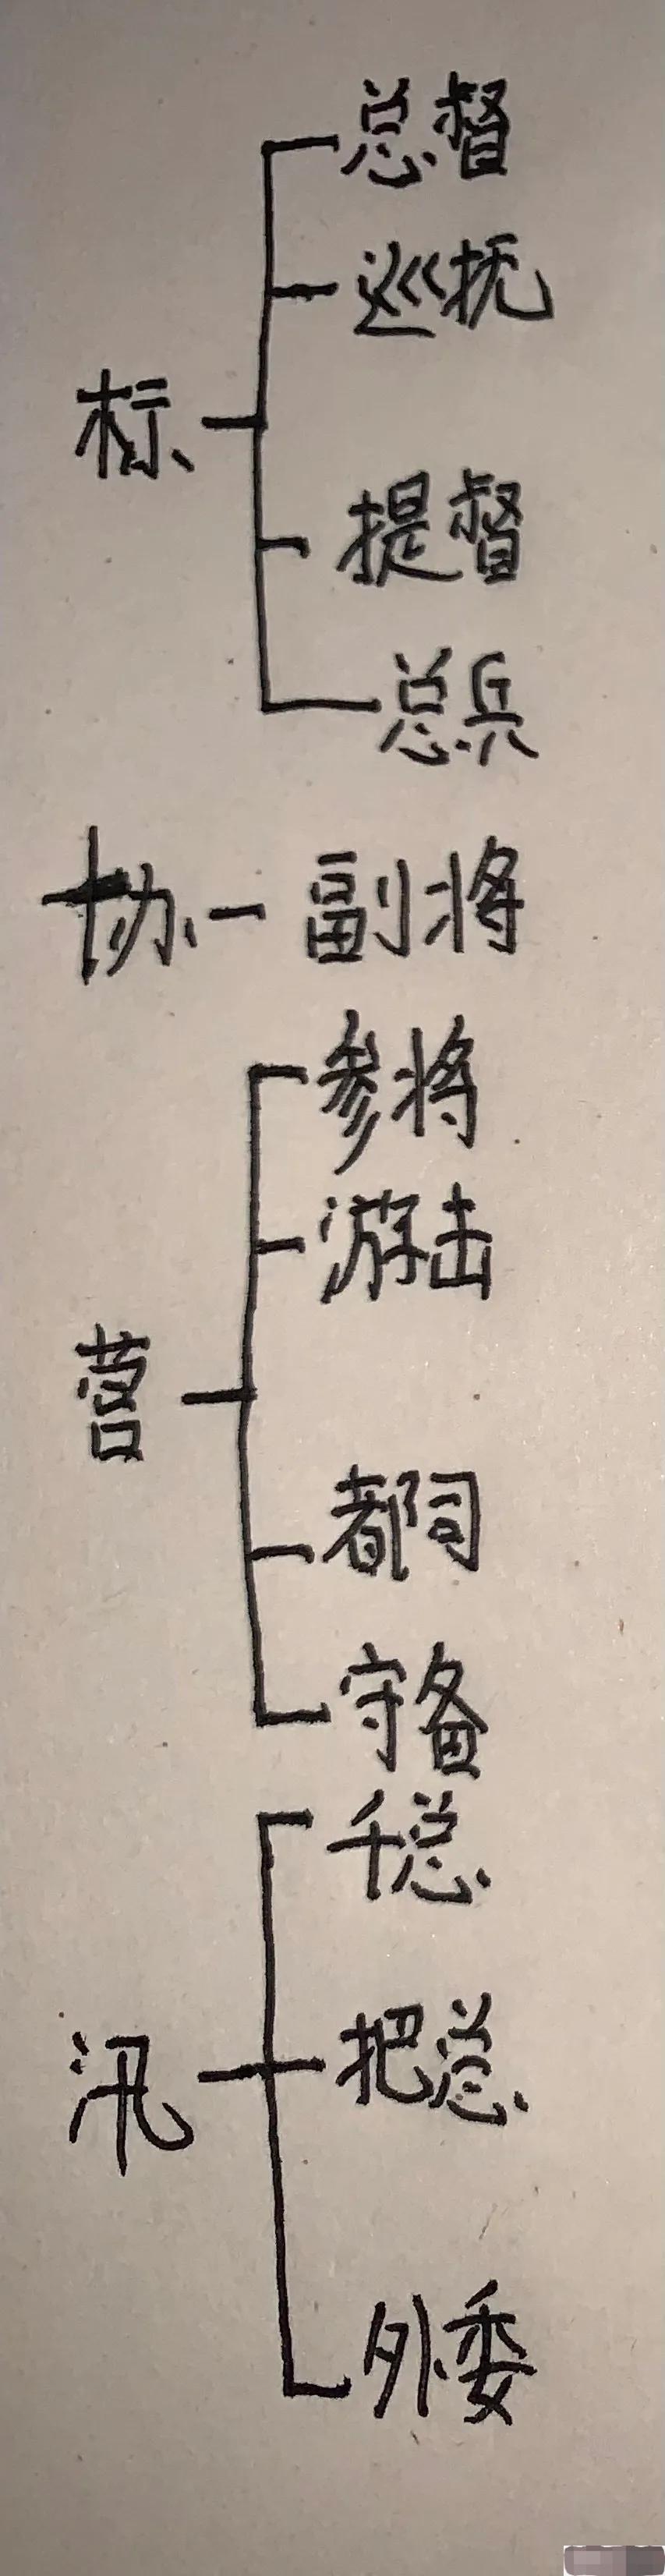 总督
巡抚
标
提督
总兵
协 副将
参将
游击
营
都司
守备
千总
汛 把总
外委